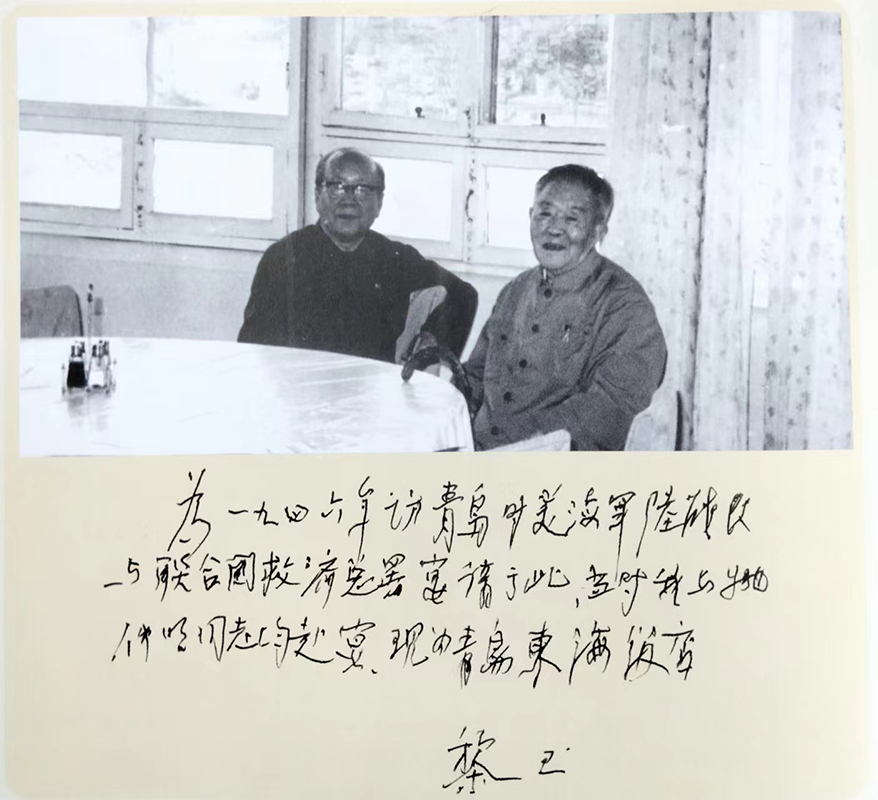 为一九四六年访青島时美海軍陸战队
与联合國救济总署宴请于此,当时我与姚
仲明同志均赴宴、现为青島東海饭店
黎玉